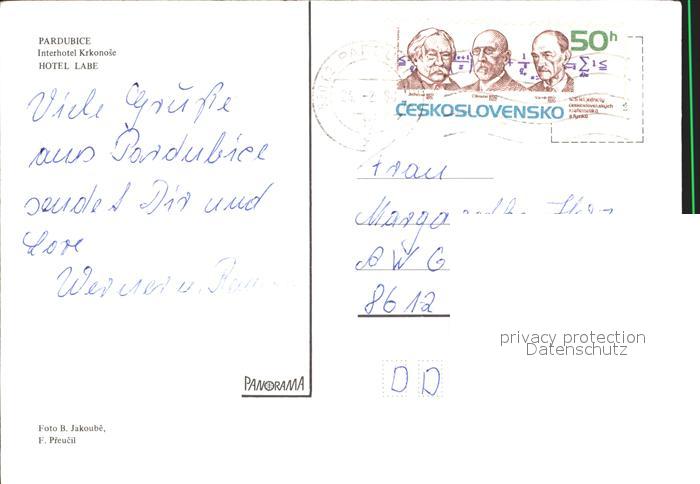 PARDUBICE
Interhotel Krkonoše
HOTEL LABE
Viele Grüße
aus Pardubice
sendet Dir und
Lore
Werner u.
50h
ČESKOSLOVENSKO
Frau
AWG
8612
DD
privacy protection
Datenschutz
PANORAMA
Foto B. Jakoubě,
F. Přeučil